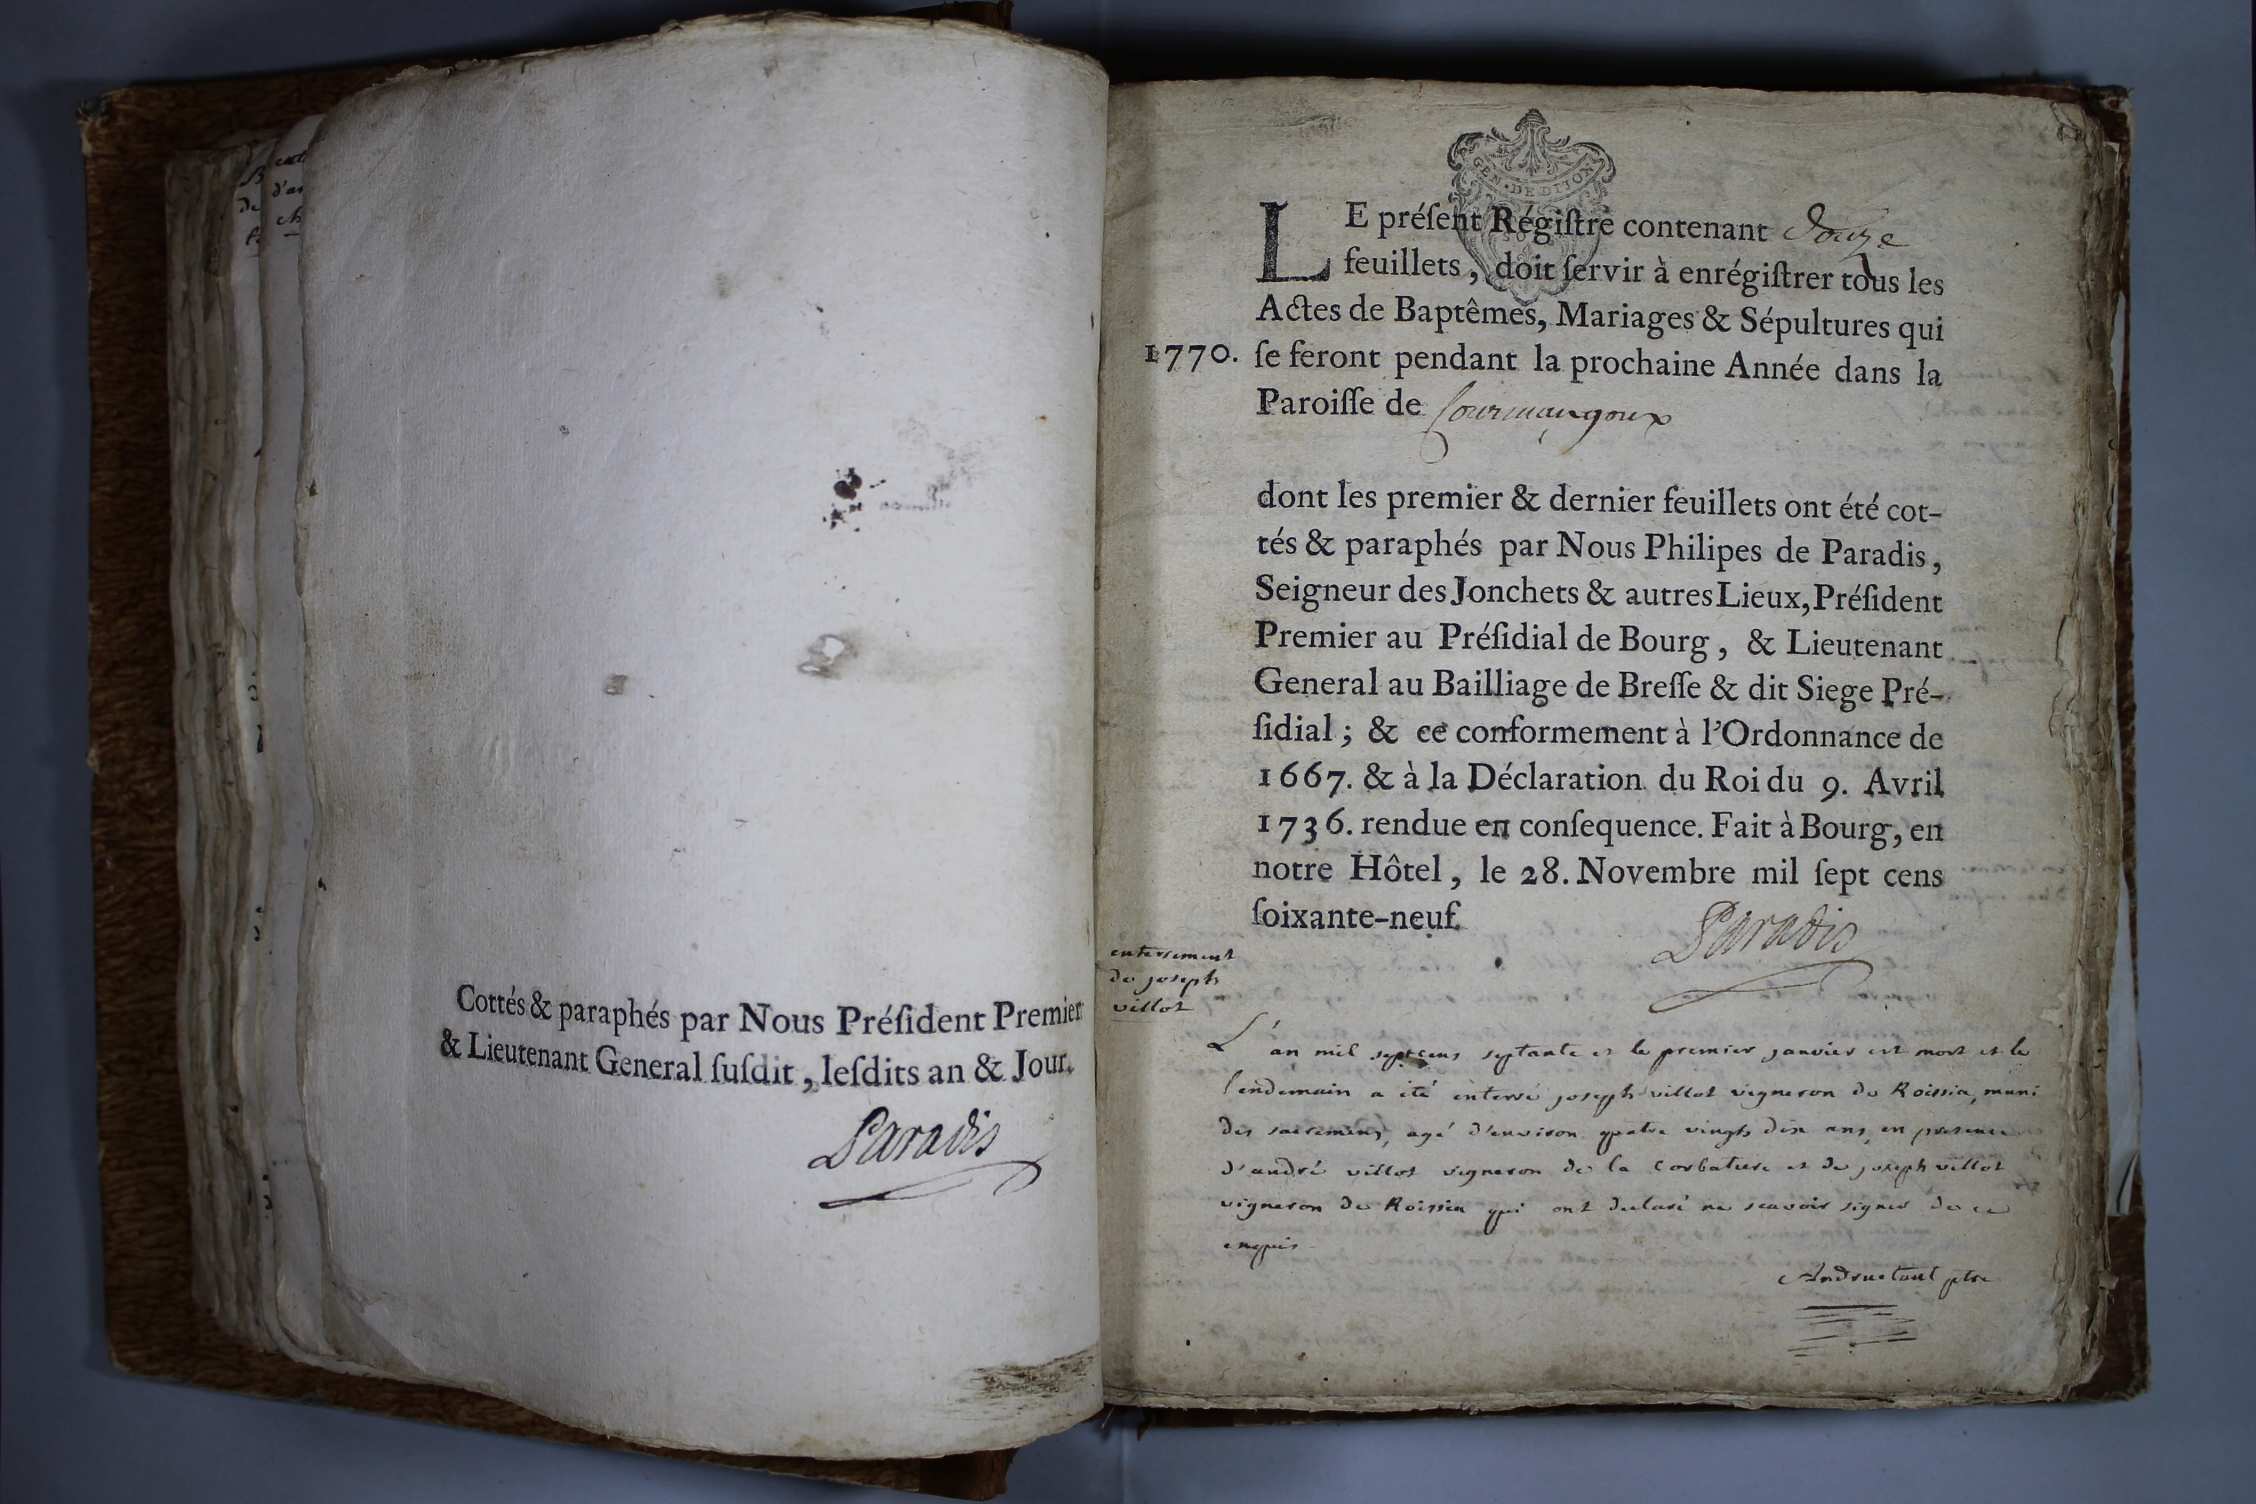 Cottés & paraphés par Nous Préſident Premier
& Lieutenant General ſuſdit, leſdits an & Jour.
Paradis
GEN. DE DIJON
LE préſent Régiſtre contenant douze
feuillets, doit ſervir à enrégiſtrer tous les
Actes de Baptêmes, Mariages & Sépultures qui
1770. ſe feront pendant la prochaine Année dans la
Paroiſſe de Courmangoux
dont les premier & dernier feuillets ont été cot-
tés & paraphés par Nous Philipes de Paradis,
Seigneur des Jonchets & autres Lieux, Préſident
Premier au Préſidial de Bourg, & Lieutenant
General au Bailliage de Breſſe & dit Siege Pré-
ſidial; & ce conformement à l'Ordonnance de
1667. & à la Déclaration du Roi du 9. Avril
1736. rendue en conſequence. Fait à Bourg, en
notre Hôtel, le 28. Novembre mil ſept cens
ſoixante-neuf.
Paradis
enterrement
de joseph
villot
L'an mil sept cens septante et le premier janvier est mort et le
lendemain a été enterré joseph villot vigneron de Roissia, muni
des sacremens, agé d'environ quatre vingts dix ans, en presence
d'andré villot vigneron de la Corbatiere et de joseph villot
vigneron de Roissia qui ont declaré ne scavoir signer de ce
enquis